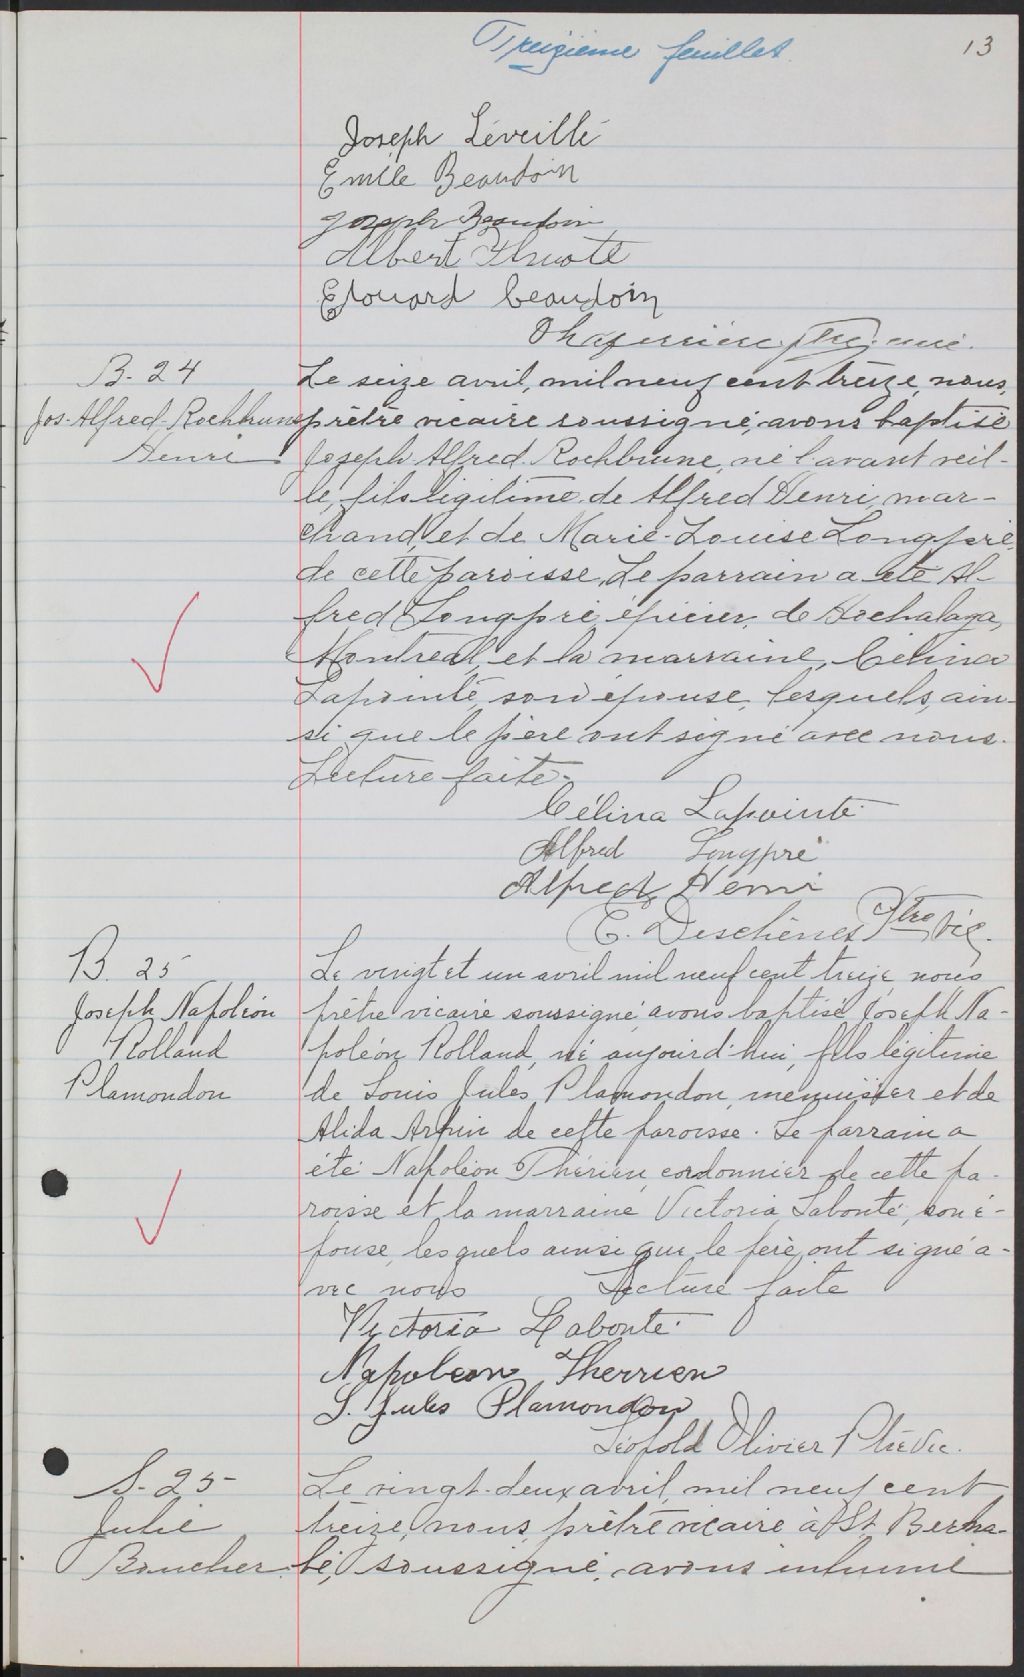 Treizième feuillet.
13
Joseph Léveillé
Emile Beaudoin
Joseph Beaudoin
Albert
Edouard beaudoin
ptre, curé.
B. 24
Jos. Alfred Rochbrune
Henri
Le seize avril, mil neuf cent treize, nous,
prêtre vicaire soussigné, avons baptisé
Joseph Alfred Rochbrune, né l'avant veil-
le, fils légitime de Alfred Henri, mar-
chand, et de Marie-Louise Longpré,
de cette paroisse. Le parrain a été Al-
fred Longpré, épicier, de Hochelaga,
Montréal, et la marraine, Célina
Lapointe, son épouse, lesquels, ain-
si que le père ont signé avec nous.
Lecture faite.
Célina Lapointe
Alfred Longpré
Alfred Henri
E. Deschênes Ptre Vic.
B. 25
Joseph Napoléon
Rolland
Plamondon
Le vingt et un avril mil neuf cent treize, nous
prêtre vicaire soussigné, avons baptisé Joseph Na-
poléon Rolland, né aujourd'hui, fils légitime
de Louis Jules Plamondon, menuisier et de
Alida Arpin de cette paroisse. Le parrain a
été Napoléon Thérien, cordonnier de cette pa-
roisse et la marraine Victoria Labonté, son é-
pouse, lesquels ainsi que le père, ont signé a-
vec nous Lecture faite
Victoria Labonte
Napoleon Therrien
L. Jules Plamondon
Léopold Olivier Ptre Vic.
S. 25
Julie
Boucher
Le vingt-deux avril, mil neuf cent
treize, nous, prêtre vicaire à St. Berna-
bé, soussigné, avons inhumé